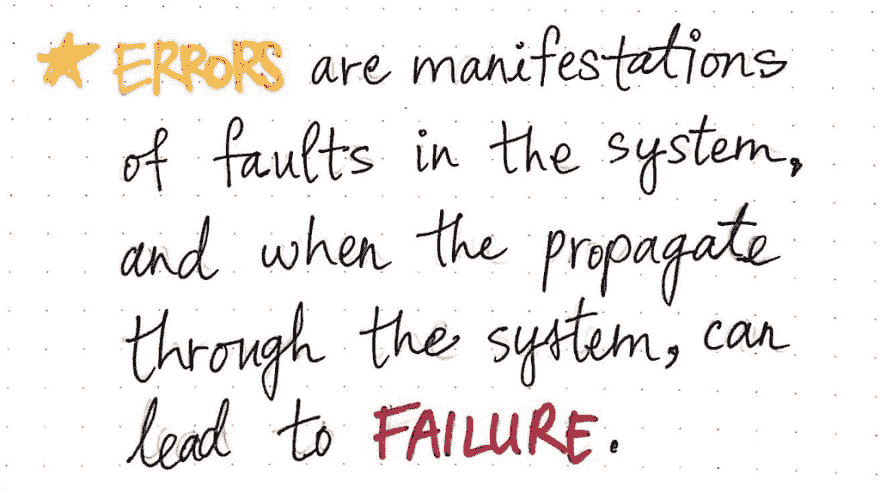 ERRORS are manifestations
of faults in the system,
and when the propagate
through the system, can
lead to FAILURE.